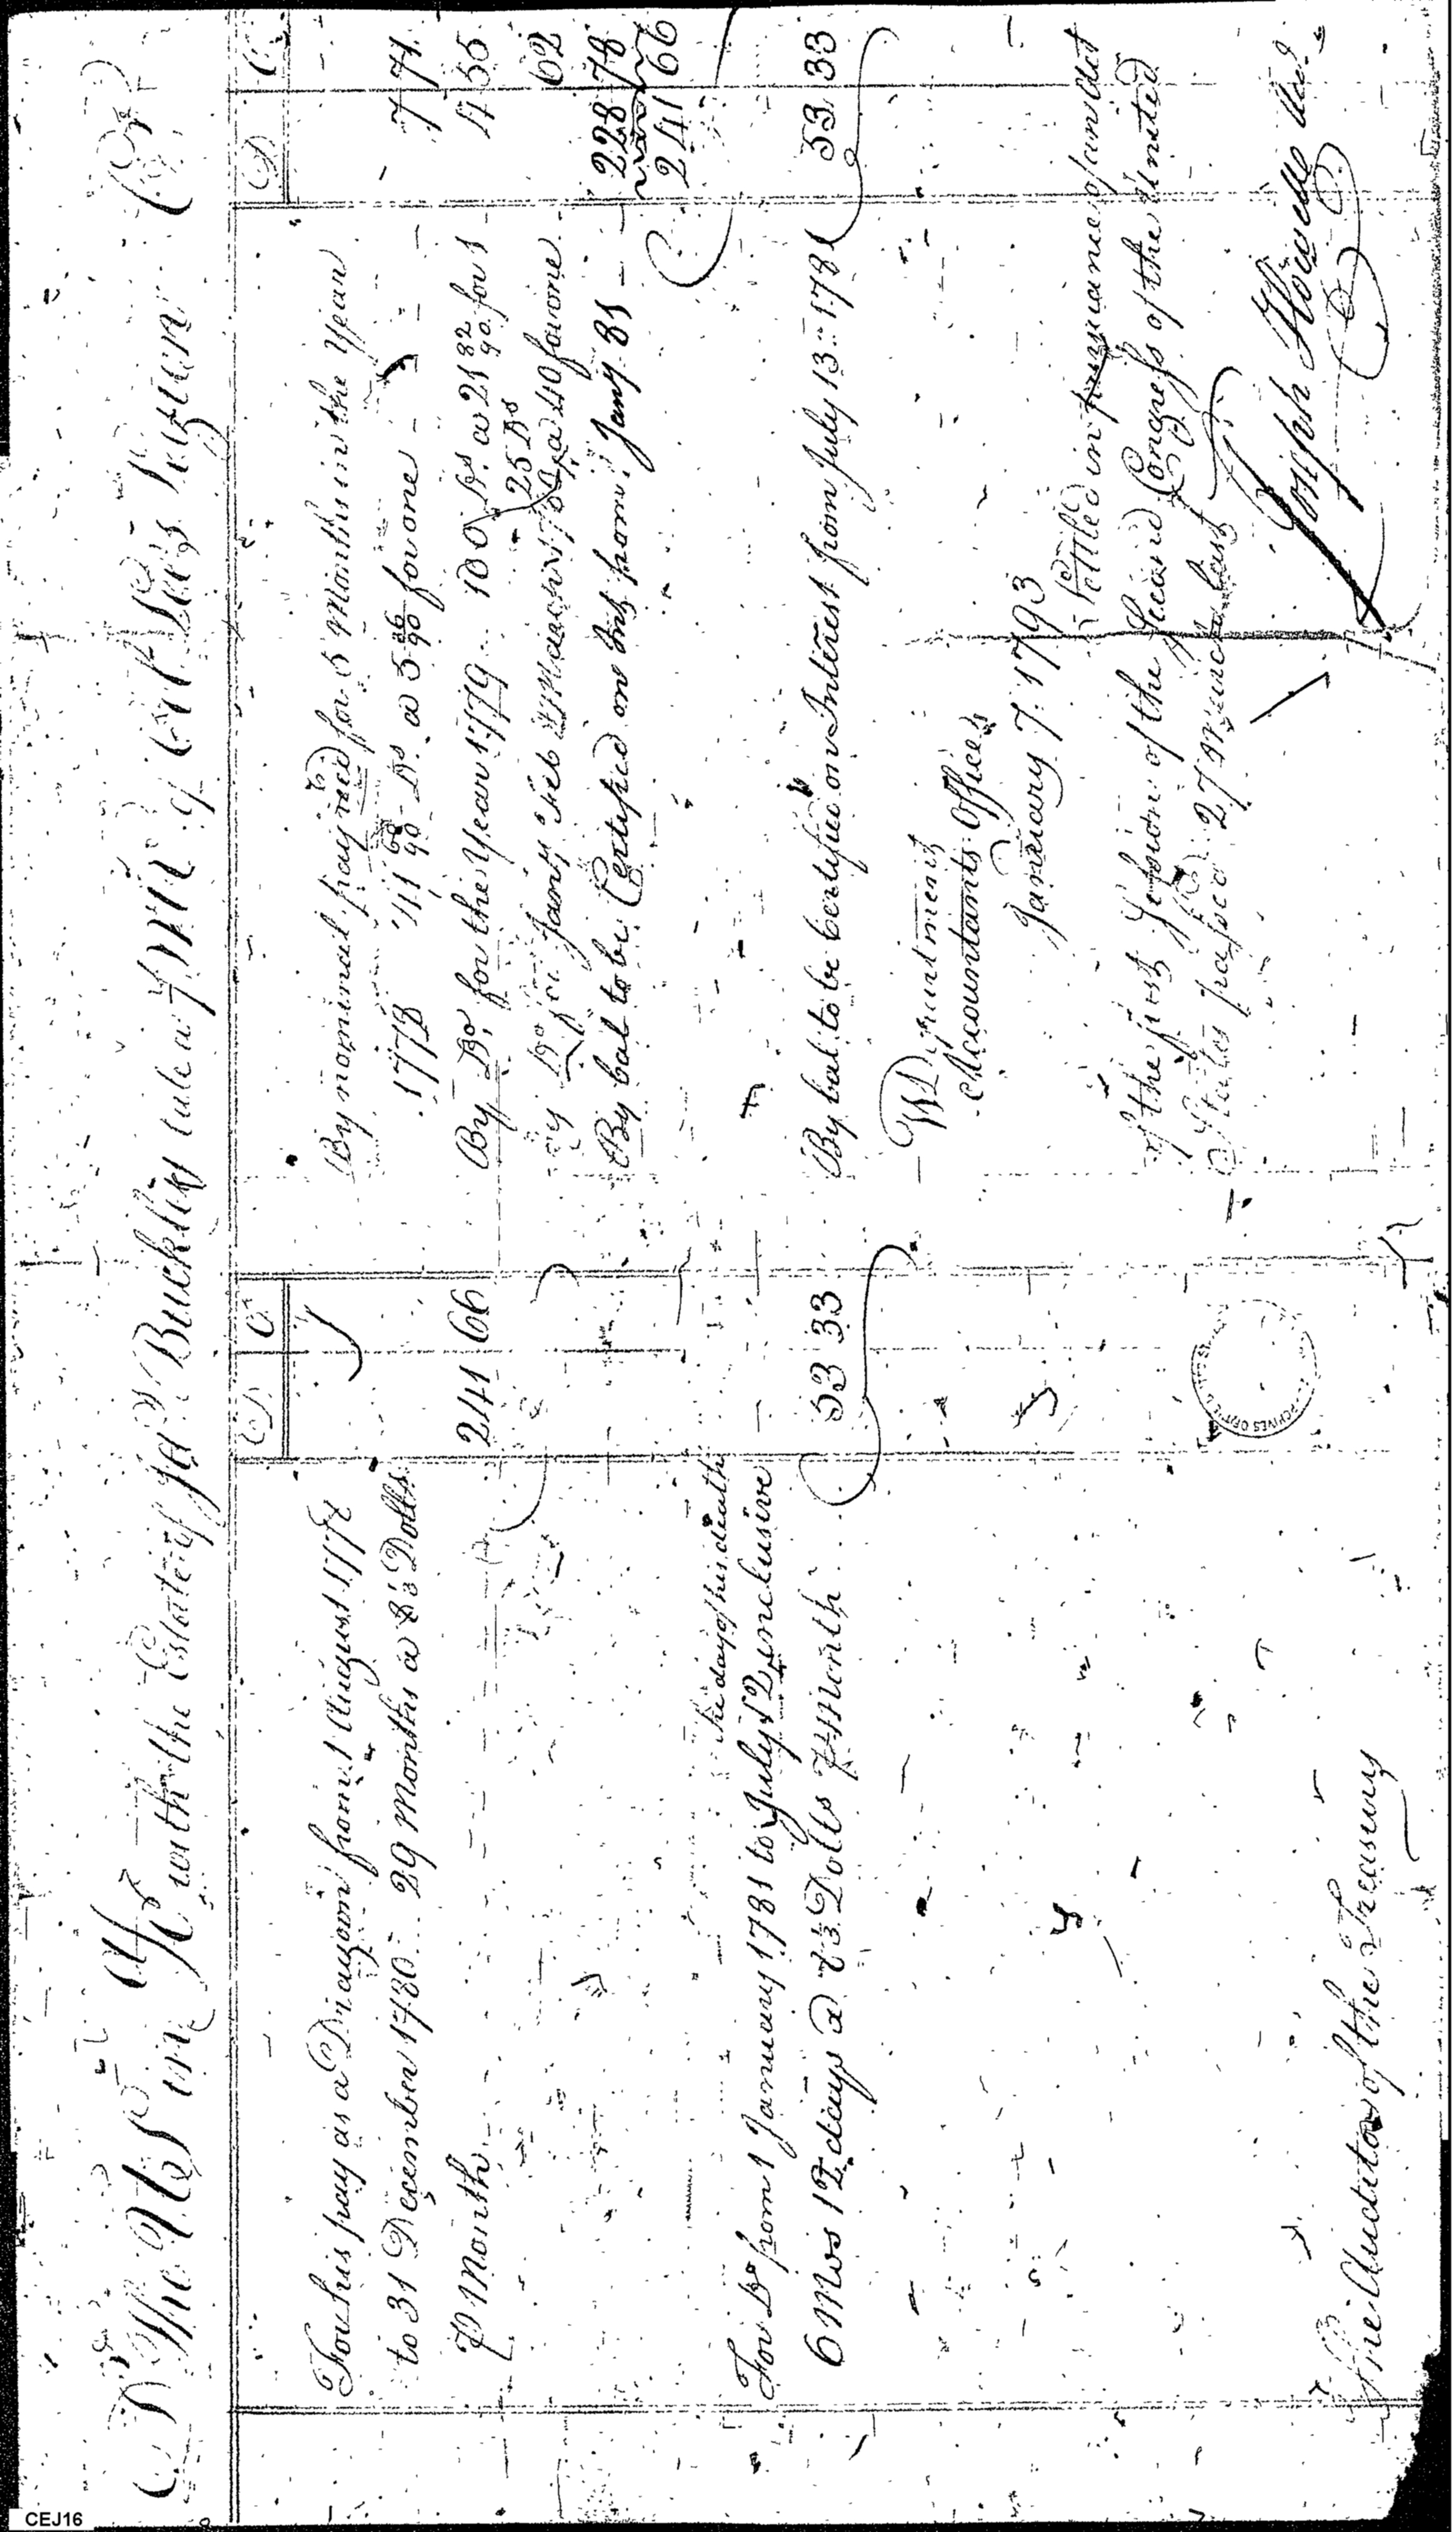 Dr The U S in Acct with the Estate of Jas Bucklin late a of Col Lee's Legion Cr
D C
D C
For his pay as a Dragoon from 1 August 1778
to 31 December 1780 29 Months a 8⅓ Dolls
P Month 241 66
the day of his death
For Do from 1 January 1781 to July 12 inclusive
6 Mos 12 days a 8⅓ Dolls P Month 53 33
The Auditor of the Treasury
By nominal pay recd for 5 Months in the Year
1778 41 60/90 Ds a 5 36/90 for one 7 71
By Do for the Year 1779 100 Ds a 21 82/90 for 1 4 55
25 Ds
By Do for Jany Feb & March 1780 a 40 for one 62
By bal to be Certified on Int from Jany 81 228 78
241 66
By bal to be certified on Interest from July 13 1781 53 33
W Department
Accountants Office
January 7 1793
Settled in pursuance of an Act
of the first Session of the Second Congress of the United
States passed 27 March last
Joseph Howell
ARCHIVES OF THE
CEJ16